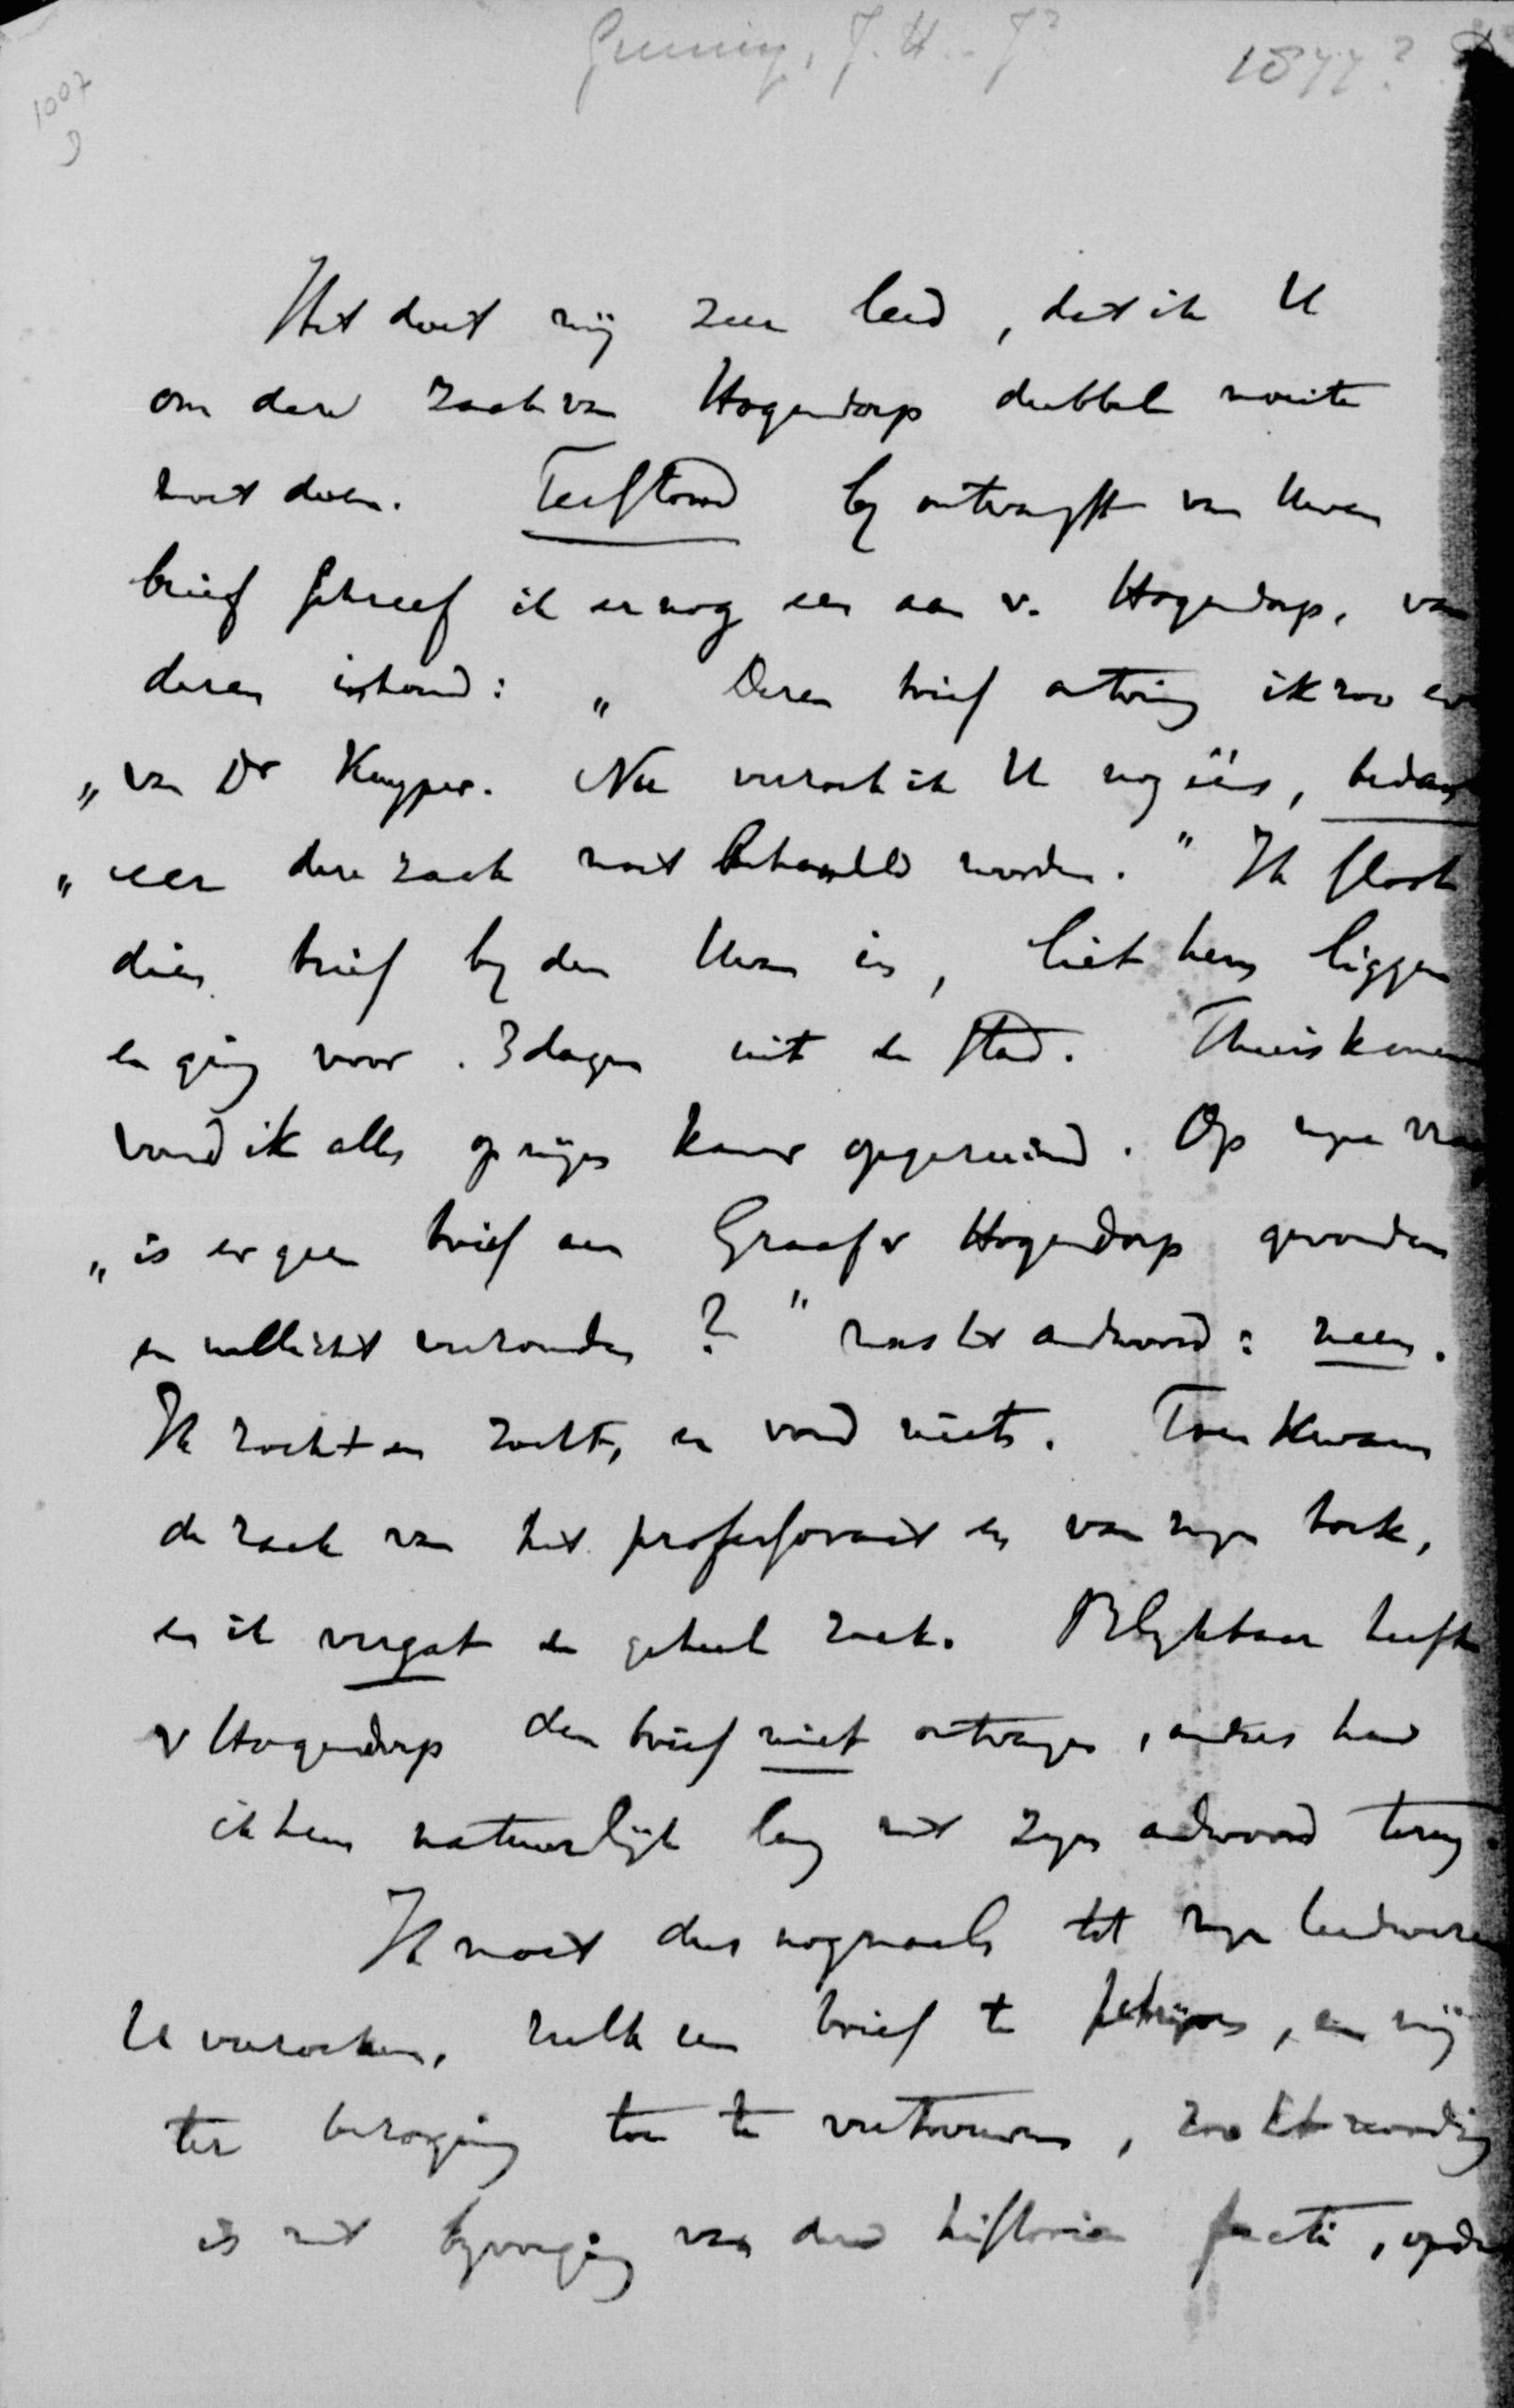 Gunning, J. H. Jr
1877?
1007
Het doet mij zeer leed, dat ik U
om deze zaak van Hogendorp dubbele moeite
moet doen. Terstond bij ontvangst van Uwen
brief schreef ik er nog een aan v. Hogendorp, van
dezen inhoud: „ Dezen brief ontving ik zoo even
„ van Dr Kuyper. Nu verzoek ik U nog ééns, bedank
„ eer deze zaak moet behandeld worden." Ik sloot
dien brief bij den Uwen in, liet hem liggen
en ging voor 3 dagen uit de stad. Thuiskomend
vond ik alles op mijn kamer opgeruimd. Op mijne vraag
„ is er geen brief aan Graaf v Hogendorp gevonden
en wellicht verzonden?" was het antwoord: neen.
Ik zocht en zocht, en vond niets. Toen kwam
de zaak van het professoraat en van mijn boek,
en ik vergat de geheele zaak. Blijkbaar heeft
v Hogendorp den brief niet ontvangen, anders had
ik hem natuurlijk lang met zijn antwoord terug.
Ik moet dus nogmaals tot mijn leedwezen
U verzoeken, zulk een brief te schrijven, en mij
ter bezorging toe te vertrouwen, zoo het noodig
is met bijvoeging van deze historia facti, opdat